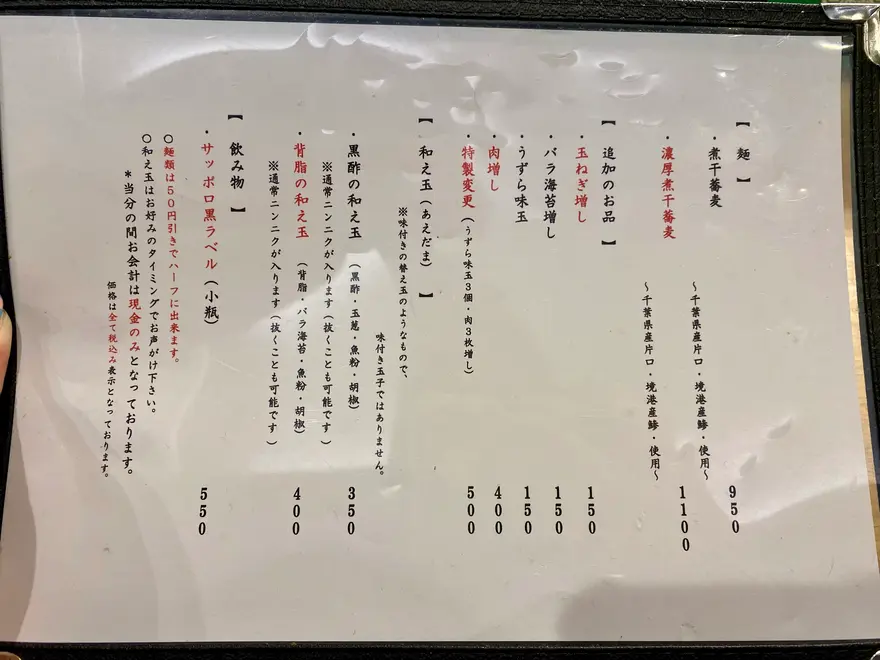 【 麺 】
・煮干蕎麦 950
〜千葉県産片口・境港産鯵・使用〜
・濃厚煮干蕎麦 1100
〜千葉県産片口・境港産鯵・使用〜
【 追加のお品 】
・玉ねぎ増し 150
・バラ海苔増し 150
・うずら味玉 150
・肉増し 400
・特製変更(うずら味玉3個・肉3枚増し) 500
【 和え玉(あえだま) 】
※味付きの替え玉のようなもので、
味付き玉子ではありません。
・黒酢の和え玉 (黒酢・玉葱・魚粉・胡椒) 350
※通常ニンニクが入ります(抜くことも可能です)
・背脂の和え玉 (背脂・バラ海苔・魚粉・胡椒) 400
※通常ニンニクが入ります(抜くことも可能です)
【 飲み物 】
・サッポロ黒ラベル(小瓶) 550
○麺類は50円引きでハーフに出来ます。
○和え玉はお好みのタイミングでお声がけ下さい。
*当分の間お会計は現金のみとなっております。
価格は全て税込み表示となっております。